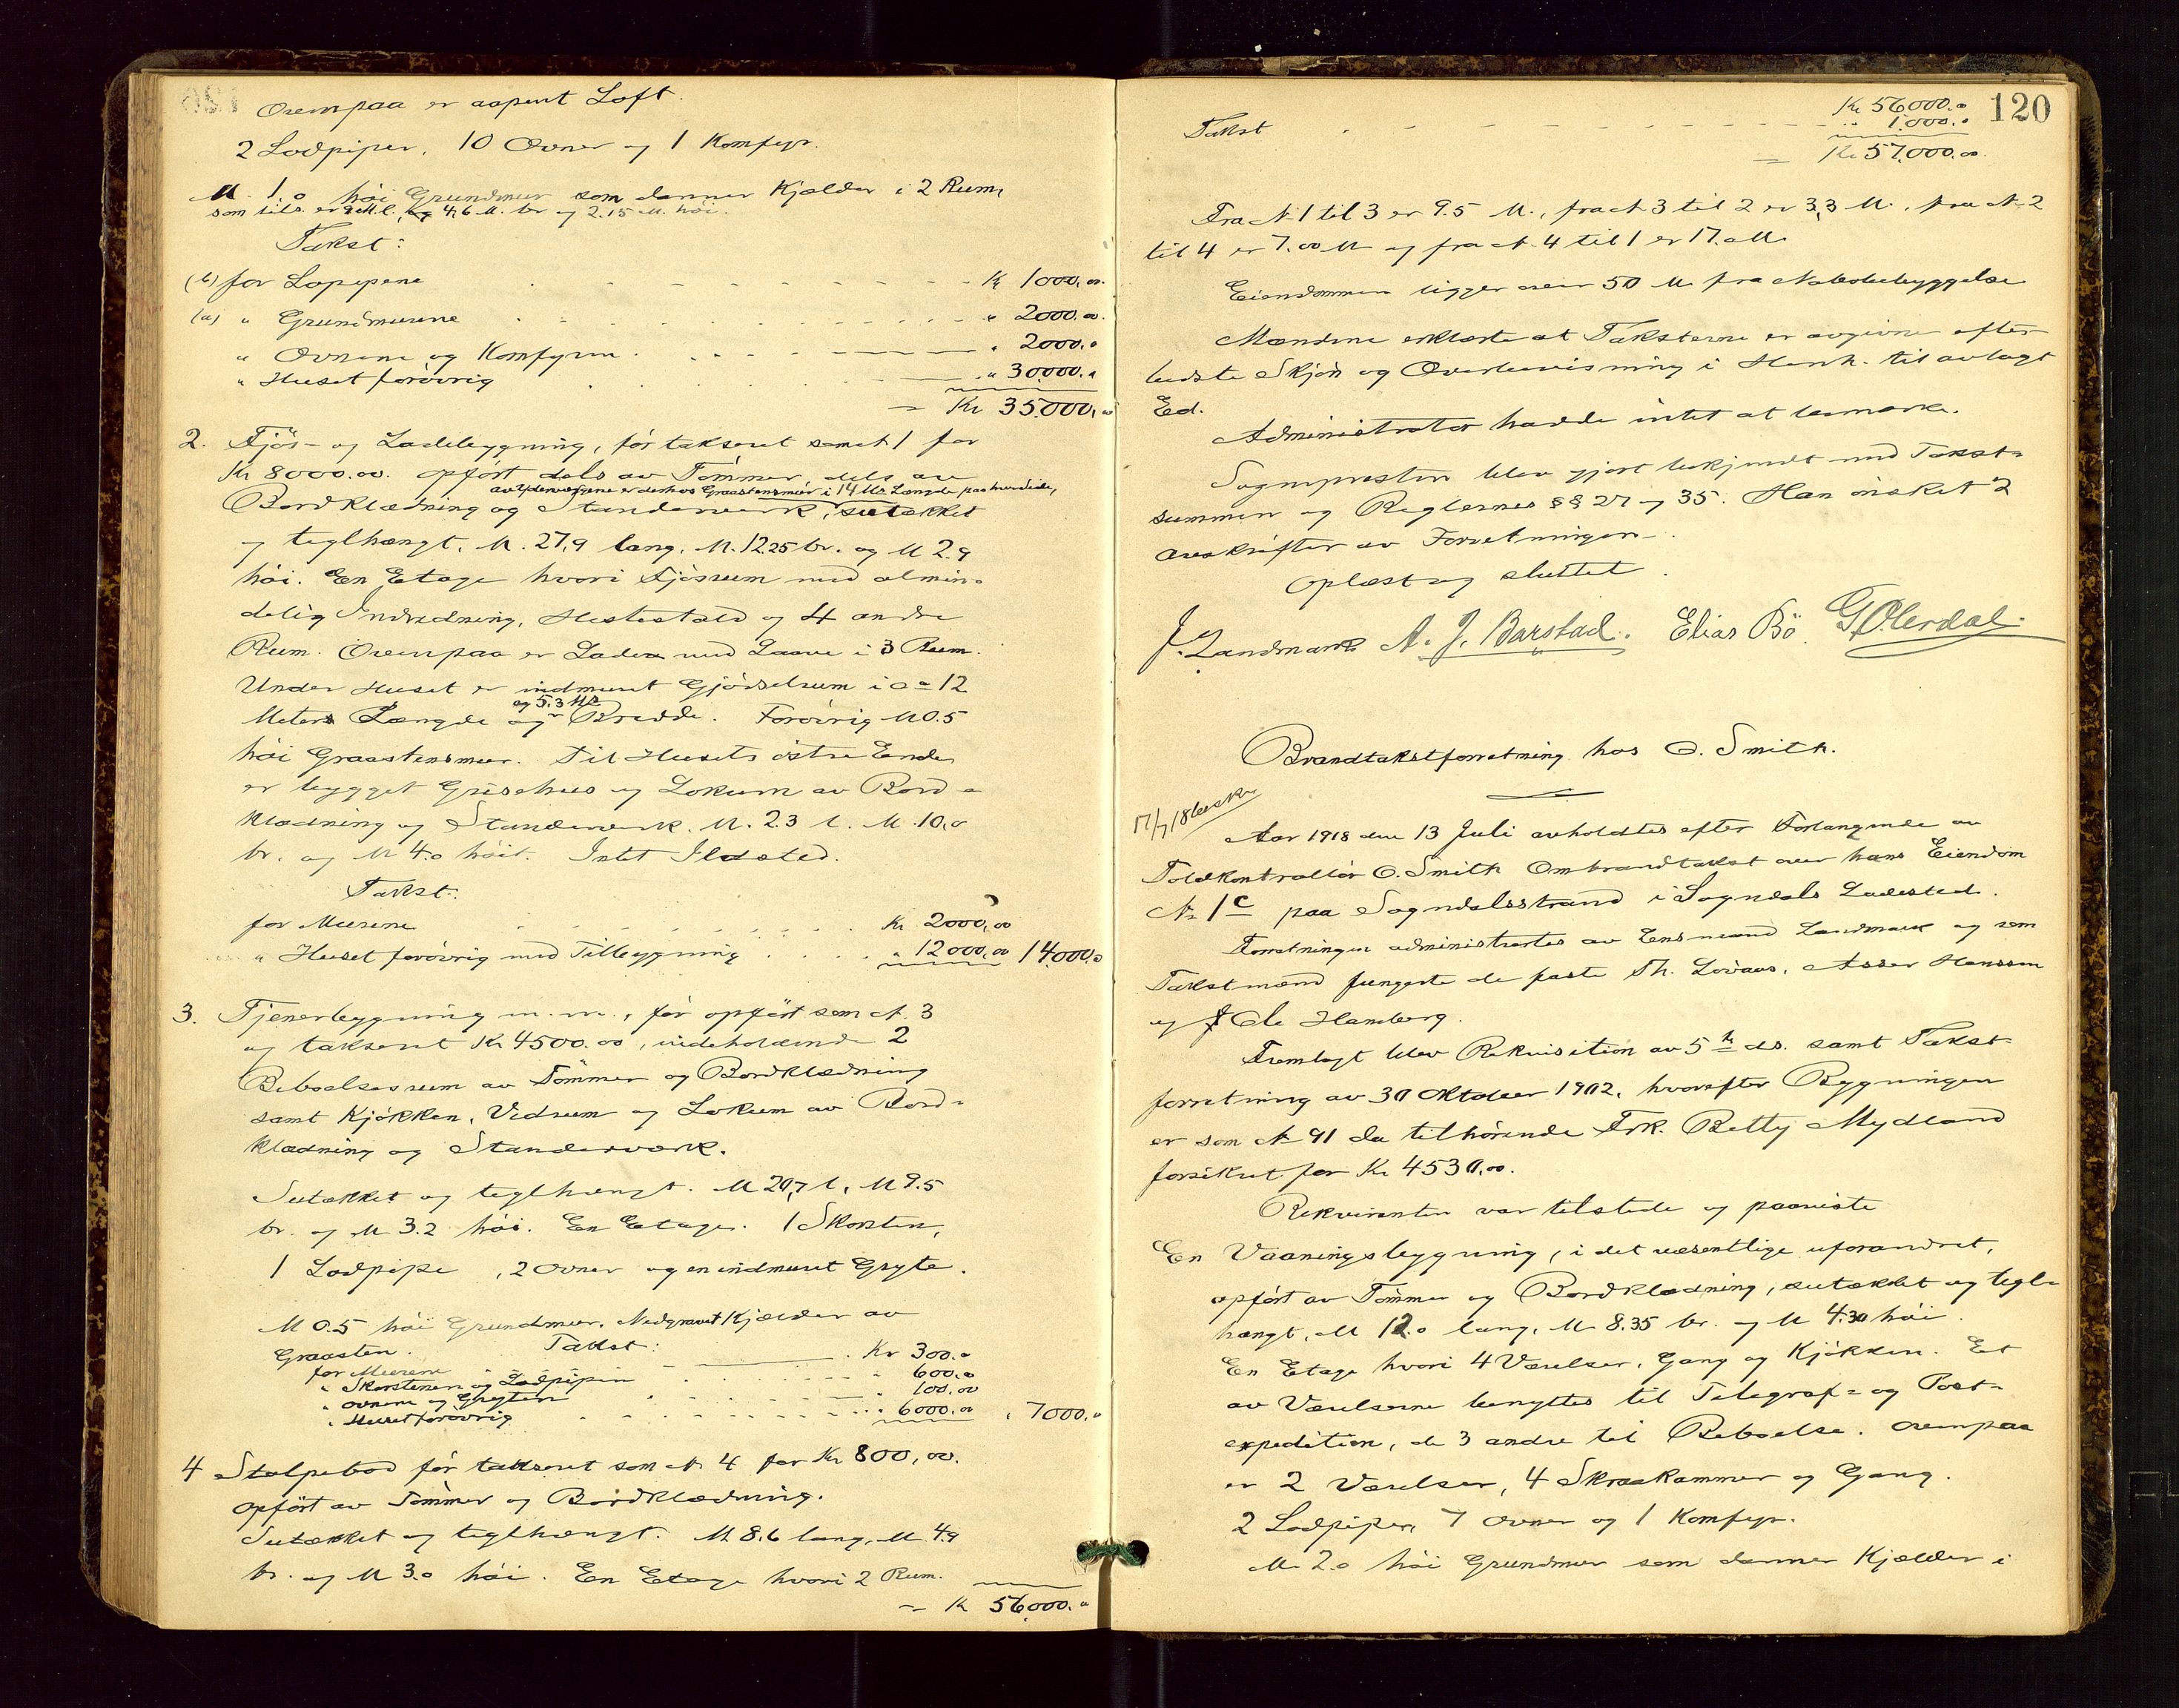 Ovenpaa er aapent Loft.
2 Lodpiper, 10 Ovner og 1 Komfyr.
M. 1.0 høi Grundmur som danner Kjælder i 2 Rum,
som tils. er 9 M. l. og 4,6 M. br og 2.15 M. høi.
Takst:
(b) for Lopipene Kr 1000,00.
(a) " Grundmurene " 2000.00.
" Ovnene og Komfyren " 2000.0
" Huset forøvrig " 30000.0
= Kr 35.000,00
2. Fjøs- og Ladebygning, før taksert som N 1 for
Kr 8000.00. opført dels av Tømmer dels av
av Ydervæggene er derhos Graastensmur i 14 Mrs Længde paa hver side,
Bordklædning og Standerverk, sutækket
og teglhængt, M. 27,9 lang, M. 12.25 br. og M 2.9
høi. En Etage hvori Fjøsrum med almin-
delig Indredning, Hestestald og 4 andre
Rum. Ovenpaa er Lade med Laave i 3 Rum.
Under Huset er indmuret Gjødselrum i ca 12
og 5.3 Mr
Meters Længde og Bredde. Forøvrig M 0.5
høi Graastensmur. Til Husets østre Ende
er bygget Grisehus og Lokum av Bord-
klædning og Standerverk. M. 2.3 l. M. 10,0
br. og M 4.0 høit. Intet Ildsted.
Takst:
for Murene Kr 2000,00
" Huset forøvrig med Tilbygning " 12000,00 14000.0
3. Tjenerbygning m.m., før opført som N. 3
og taksert Kr 4500.00, indeholdende 2
Beboelsesrum av Tømmer og Bordklædning
samt Kjøkken, Vedrum og Lokum av Bord-
klædning og Standerverk.
Sutækket og teglhængt. M 20,7 l, M 9.5
br. og M 3.2 høi. En Etage. 1 Skorsten,
1 Lodpipe, 2 Ovner og en indmuret Gryte.
M 0.5 høi Grundmur. Nedgravet Kjælder av
Graasten. Takst:
for Murene Kr 300.0
" Skorstenen og Lodpipen " 600.0
" Ovnene og Gryten " 100.00
" Huset forøvrig " 6000.00 " 7000.0
4 Stolpebod før taksert som N 4 for Kr 800,00.
opført av Tømmer og Bordklædning.
Sutækket og teglhængt. M 8,6 lang, M 4,9
br. og M 3.0 høi. En Etage hvori 2 Rum.
= Kr 56000.0
120
Kr 56000.0
Takst " 1.000.0
= Kr 57.000.00
Fra N 1 til 3 er 9.5 M., fra N 3 til 2 er 3,3 M., fra N 2
til 4 er 7.00 M og fra N. 4 til 1 er 17.0 M.
Eiendommen ligger over 50 M fra Nabobebyggelse
Mændene erklærte at Taksterne er avgivne efter
bedste Skjøn og Overbevisning i Henh. til avlagt
Ed.
Administrator havde intet at bemærke.
Sognepresten blev gjort bekjendt med Takst-
summen og Reglernes §§ 27 og 35. Han ønsket 2
avskrifter av Forretningen.
Oplæst og sluttet.
J. Landmark A. J. Barstad. Elias Bö. G. Olerdal.
Brandtakstforretning hos O. Smith.
17/7 18 besk.
Aar 1918 den 13 Juli avholdtes efter Forlangende av
Toldkontrollør O. Smith Ombrandtakst over hans Eiendom
N 1c paa Sogndalsstrand i Sogndals Ladested.
Forretningen administrertes av Lensmand Landmark og som
Takstmænd fungerte de faste Th. Lovaas, Asser Hanssen
og Ole Hamberg.
Fremlagt blev Rekvisition av 5te ds. samt Takst-
forretning av 30 Oktober 1902, hvorefter Bygningen
er som N 91 da tilhørende Frk. Betty Mydland
forsikret for Kr 4530,00.
Rekvirenten var tilstede og paaviste
En Vaaningsbygning, i det væsentlige uforandret,
opført av Tømmer og Bordklædning, sutækket og tegl-
hængt, M 12.0 lang, M 8.35 br. og M 4.30 høi.
En Etage hvori 4 Værelser, Gang og Kjøkken. Et
av Værelserne benyttes til Telegraf- og Post-
expedition, de 3 andre til Beboelse. Ovenpaa
er 2 Værelser, 4 Skraakammer og Gang.
2 Lodpiper, 7 Ovner og 1 Komfyr.
M 2.0 høi Grundmur som danner Kjælder i